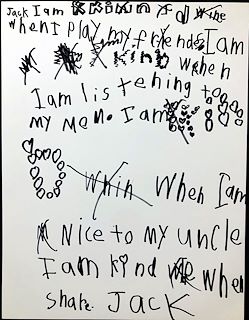 Jack I am kind
when I play my friends I am
kind when
I am listening to
my mom. I am
When I am
Nice to my uncle
I am kind when
share. Jack